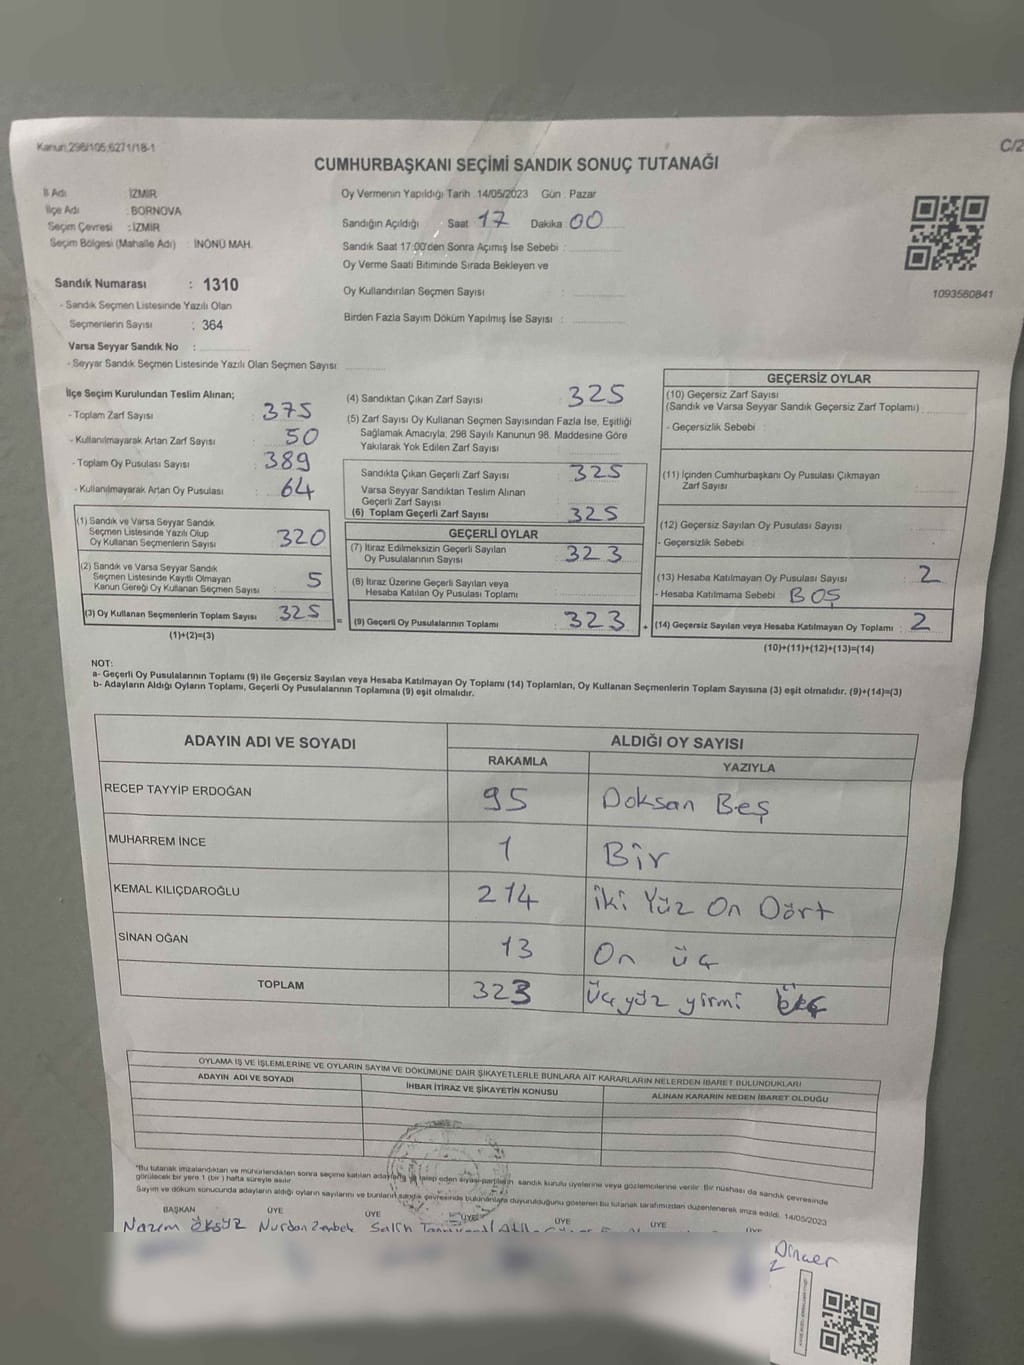 Kanun:298/105,6271/18-1
C/2
CUMHURBAŞKANI SEÇİMİ SANDIK SONUÇ TUTANAĞI
İl Adı : İZMİR
İlçe Adı : BORNOVA
Seçim Çevresi : İZMİR
Seçim Bölgesi (Mahalle Adı) : İNÖNÜ MAH.
Oy Vermenin Yapıldığı Tarih :14/05/2023 Gün : Pazar
Sandığın Açıldığı Saat : 17 Dakika 00
Sandık Saat 17:00'den Sonra Açımış İse Sebebi :
Oy Verme Saati Bitiminde Sırada Bekleyen ve
Oy Kullandırılan Seçmen Sayısı :
Birden Fazla Sayım Döküm Yapılmış İse Sayısı :
1093580841
Sandık Numarası : 1310
- Sandık Seçmen Listesinde Yazılı Olan
Seçmenlerin Sayısı : 364
Varsa Seyyar Sandık No :
- Seyyar Sandık Seçmen Listesinde Yazılı Olan Seçmen Sayısı:
İlçe Seçim Kurulundan Teslim Alınan;
- Toplam Zarf Sayısı : 375
- Kullanılmayarak Artan Zarf Sayısı : 50
- Toplam Oy Pusulası Sayısı : 389
- Kullanılmayarak Artan Oy Pusulası : 64
(1) Sandık ve Varsa Seyyar Sandık
Seçmen Listesinde Yazılı Olup
Oy Kullanan Seçmenlerin Sayısı : 320
(2) Sandık ve Varsa Seyyar Sandık
Seçmen Listesinde Kayıtlı Olmayan
Kanun Gereği Oy Kullanan Seçmen Sayısı : 5
(3) Oy Kullanan Seçmenlerin Toplam Sayısı : 325
(1)+(2)=(3)
(4) Sandıktan Çıkan Zarf Sayısı : 325
(5) Zarf Sayısı Oy Kullanan Seçmen Sayısından Fazla İse, Eşitliği
Sağlamak Amacıyla; 298 Sayılı Kanunun 98. Maddesine Göre
Yakılarak Yok Edilen Zarf Sayısı :
Sandıkta Çıkan Geçerli Zarf Sayısı : 325
Varsa Seyyar Sandıktan Teslim Alınan
Geçerli Zarf Sayısı :
(6) Toplam Geçerli Zarf Sayısı : 325
GEÇERLİ OYLAR
(7) İtiraz Edilmeksizin Geçerli Sayılan
Oy Pusulalarının Sayısı : 323
(8) İtiraz Üzerine Geçerli Sayılan veya
Hesaba Katılan Oy Pusulası Toplamı :
= (9) Geçerli Oy Pusulalarının Toplamı : 323
GEÇERSİZ OYLAR
(10) Geçersiz Zarf Sayısı
(Sandık ve Varsa Seyyar Sandık Geçersiz Zarf Toplamı) :
- Geçersizlik Sebebi :
(11) İçinden Cumhurbaşkanı Oy Pusulası Çıkmayan
Zarf Sayısı :
(12) Geçersiz Sayılan Oy Pusulası Sayısı :
- Geçersizlik Sebebi :
(13) Hesaba Katılmayan Oy Pusulası Sayısı : 2
- Hesaba Katılmama Sebebi : BOŞ
+ (14) Geçersiz Sayılan veya Hesaba Katılmayan Oy Toplamı : 2
(10)+(11)+(12)+(13)=(14)
NOT:
a- Geçerli Oy Pusulalarının Toplamı (9) ile Geçersiz Sayılan veya Hesaba Katılmayan Oy Toplamı (14) Toplamları, Oy Kullanan Seçmenlerin Toplam Sayısına (3) eşit olmalıdır. (9)+(14)=(3)
b- Adayların Aldığı Oyların Toplamı, Geçerli Oy Pusulalarının Toplamına (9) eşit olmalıdır.
ADAYIN ADI VE SOYADI ALDIĞI OY SAYISI
RAKAMLA YAZIYLA
RECEP TAYYİP ERDOĞAN 95 Doksan Beş
MUHARREM İNCE 1 Bir
KEMAL KILIÇDAROĞLU 214 iki Yüz On Dört
SİNAN OĞAN 13 On üç
TOPLAM 323 üçyüz yirmi
OYLAMA İŞ VE İŞLEMLERİNE VE OYLARIN SAYIM VE DÖKÜMÜNE DAİR ŞİKAYETLERLE BUNLARA AİT KARARLARIN NELERDEN İBARET BULUNDUKLARI
ADAYIN ADI VE SOYADI İHBAR İTİRAZ VE ŞİKAYETİN KONUSU ALINAN KARARIN NEDEN İBARET OLDUĞU
*Bu tutanak imzalandıktan ve mühürlendikten sonra seçime katılan adaylara ve talep eden siyasi partilerin sandık kurulu üyelerine veya gözlemcilerine verilir. Bir nüshası da sandık çevresinde
görülecek bir yere 1 (bir) hafta süreyle asılır.
Sayım ve döküm sonucunda adayların aldığı oyların sayılarını ve bunların sandık çevresinde bulunanlara duyurulduğunu gösteren bu tutanak tarafımızdan düzenlenerek imza edildi. 14/05/2023
BAŞKAN ÜYE ÜYE ÜYE ÜYE ÜYE ÜYE
Nazım Öksüz Nurdan Salih
Dinçer